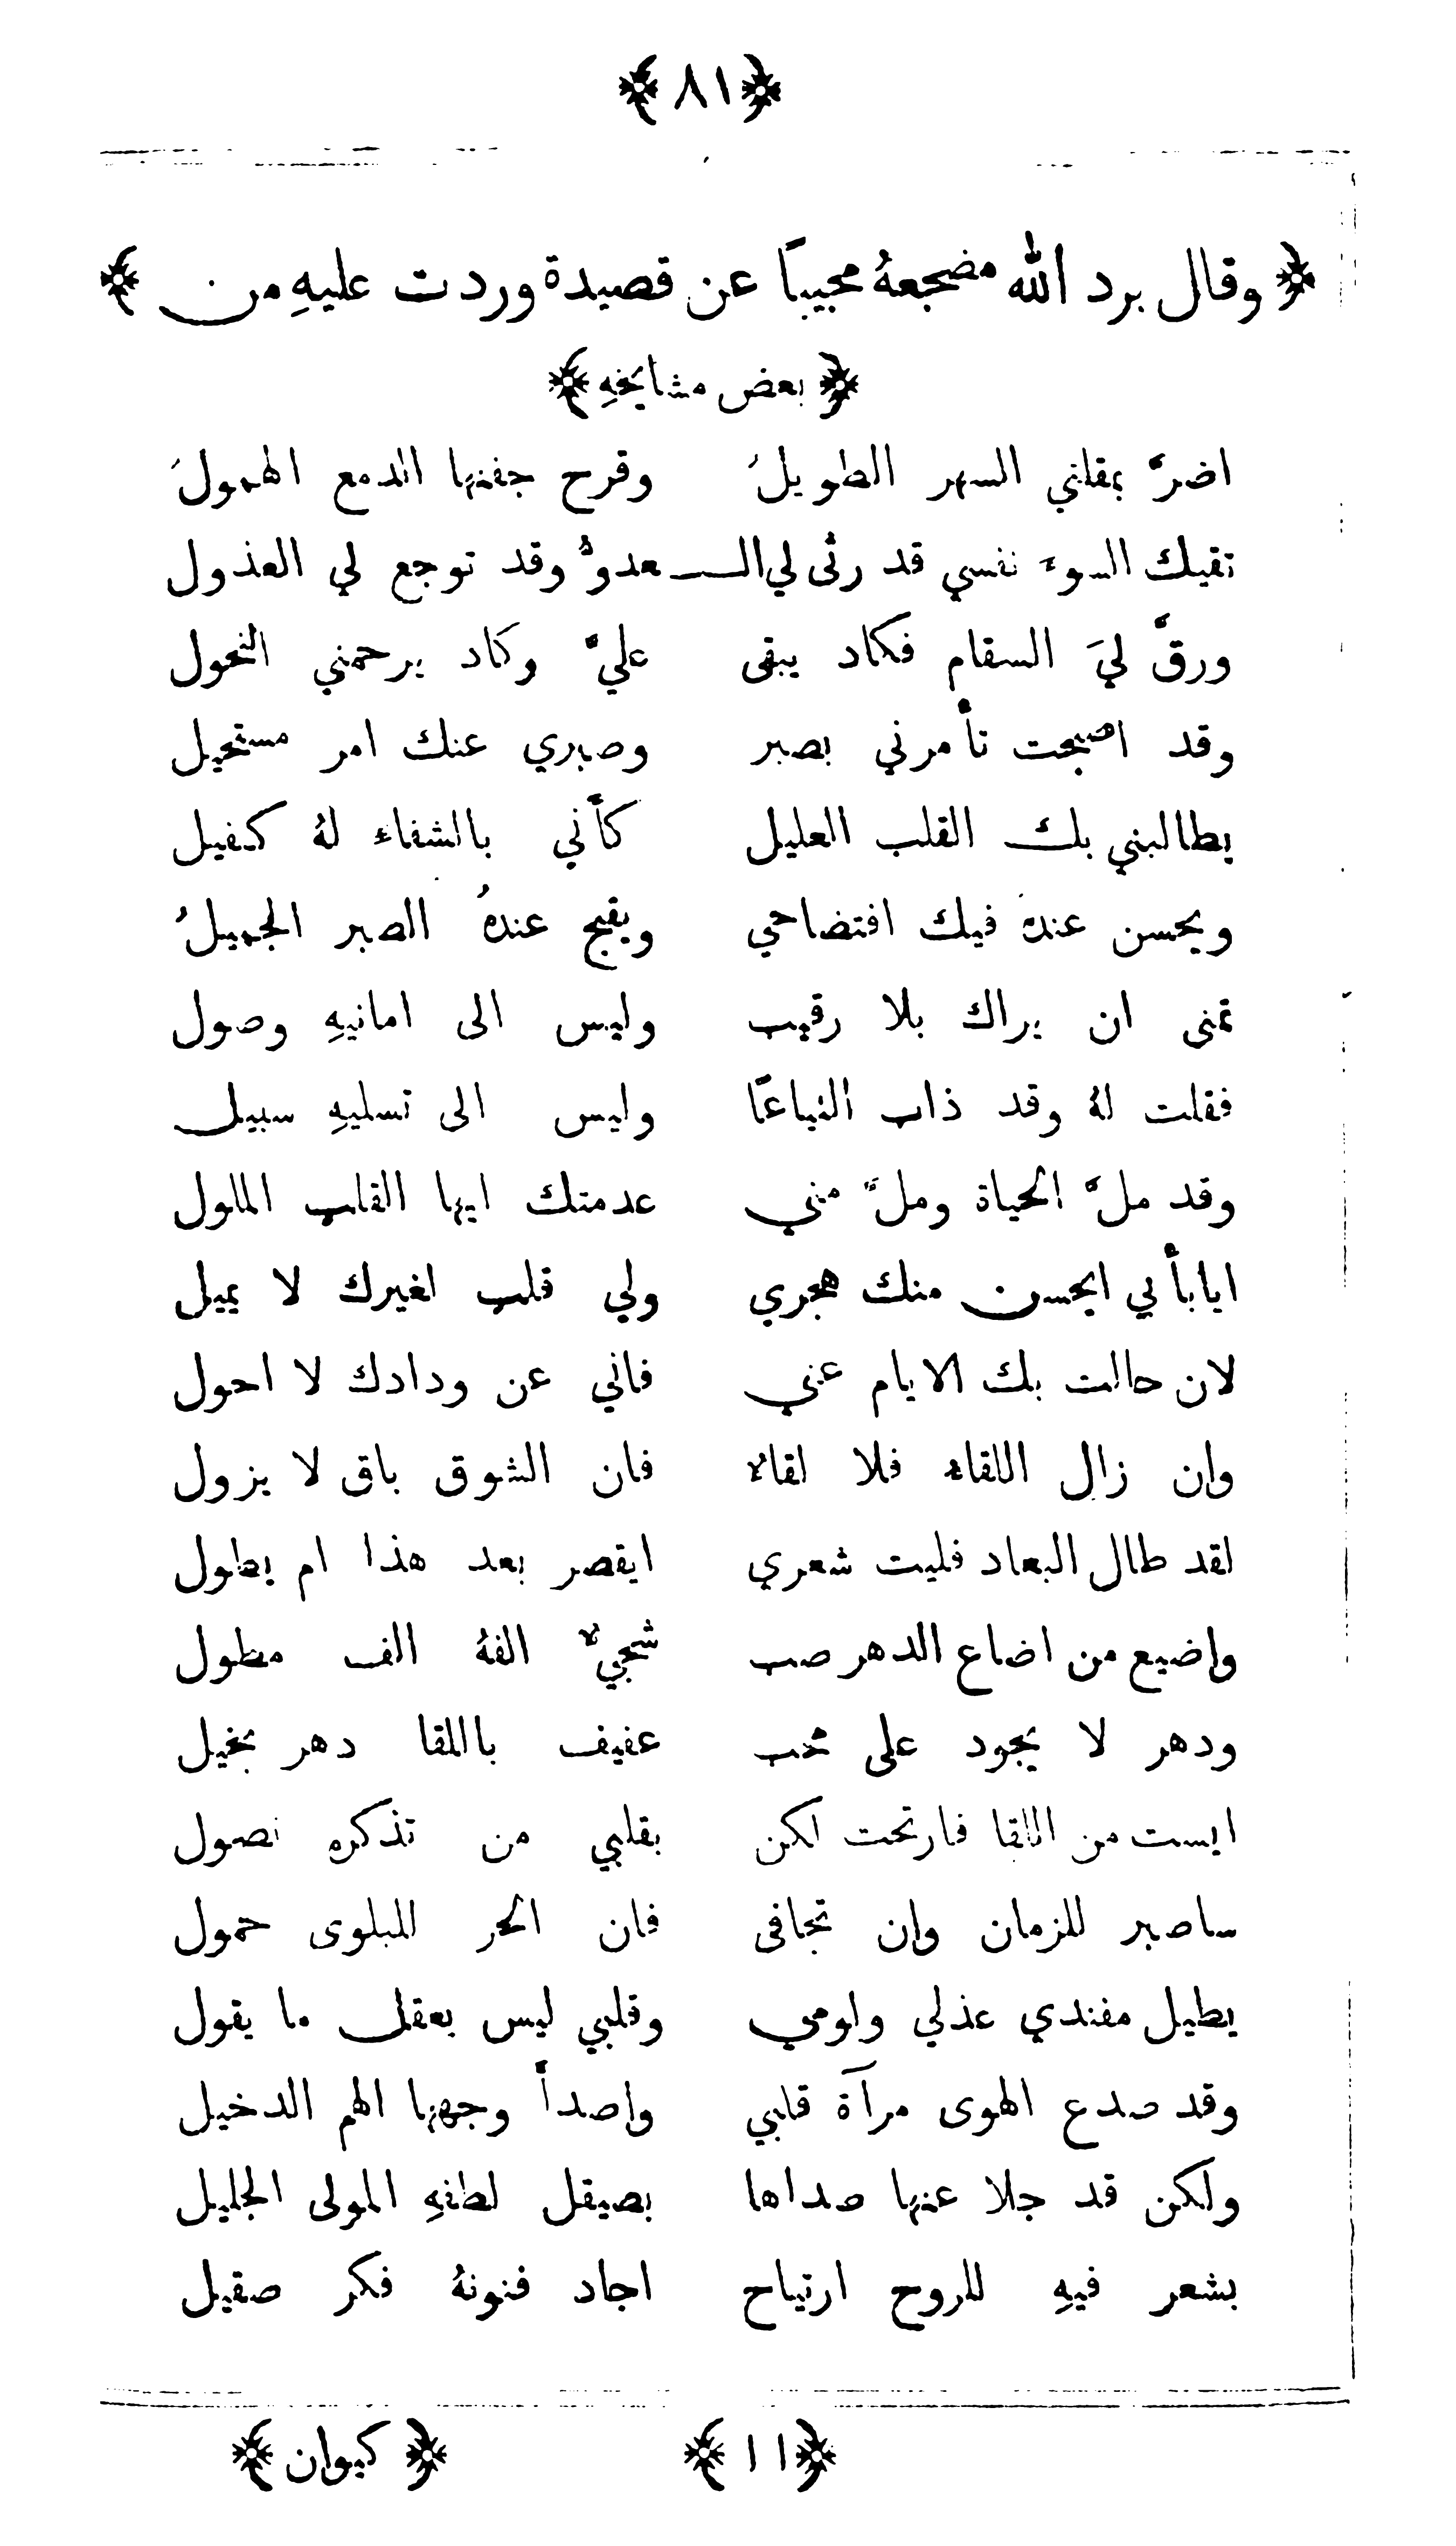 ﴿ ٨١ ﴾
﴿ وقال برد الله مضجعهُ مجيبًا عن قصيدة وردت عليهِ من ﴾
﴿ بعض مشايخهِ ﴾
اضرَّ بمقلتي السهر الطويلُ وقرح جفنها الدمع الهمولُ
تقيك السوء نفسي قد رثى لي الـعدوُّ وقد توجع لي العذول
ورقَّ ليَ السقام فكاد يبقى عليَّ وكاد يرحمني النحول
وقد اصبحت تأمرني بصبر وصبري عنك امر مستحيل
يطالبني بك القلب العليل كأني بالشفاء لهُ كفيل
ويحسن عندهُ فيك افتضاحي ويقبح عندهُ الصبر الجميلُ
تمنى ان يراك بلا رقيب وليس الى امانيهِ وصول
فقلت لهُ وقد ذاب التياعًا وليس الى تسليهِ سبيل
وقد ملَّ الحياة وملَّ مني عدمتك ايها القلب الملول
ايا بأبي ايحسن منك هجري ولي قلب لغيرك لا يميل
لان حالت بك الايام عني فاني عن ودادك لا احول
وان زال اللقاء فلا لقاءٌ فان الشوق باق لا يزول
لقد طال البعاد فليت شعري ايقصر بعد هذا ام يطول
واضيع من اضاع الدهر صب شجيٌّ الفهُ الف مطول
ودهر لا يجود على محب عفيف باللقا دهر بخيل
ايست من اللقا فارتحت لكن بقلبي من تذكره نصول
ساصبر للزمان وان تجافى فان الحر للبلوى حمول
يطيل مفندي عذلي ولومي وقلبي ليس يعقل ما يقول
وقد صدع الهوى مرآة قلبي واصدأ وجهها الهم الدخيل
ولكن قد جلا عنها صداها بصيقل لطفهِ المولى الجليل
بشعر فيهِ للروح ارتياح اجاد فنونهُ فكر صقيل
﴿ ١١ ﴾ ﴿ كيوان ﴾